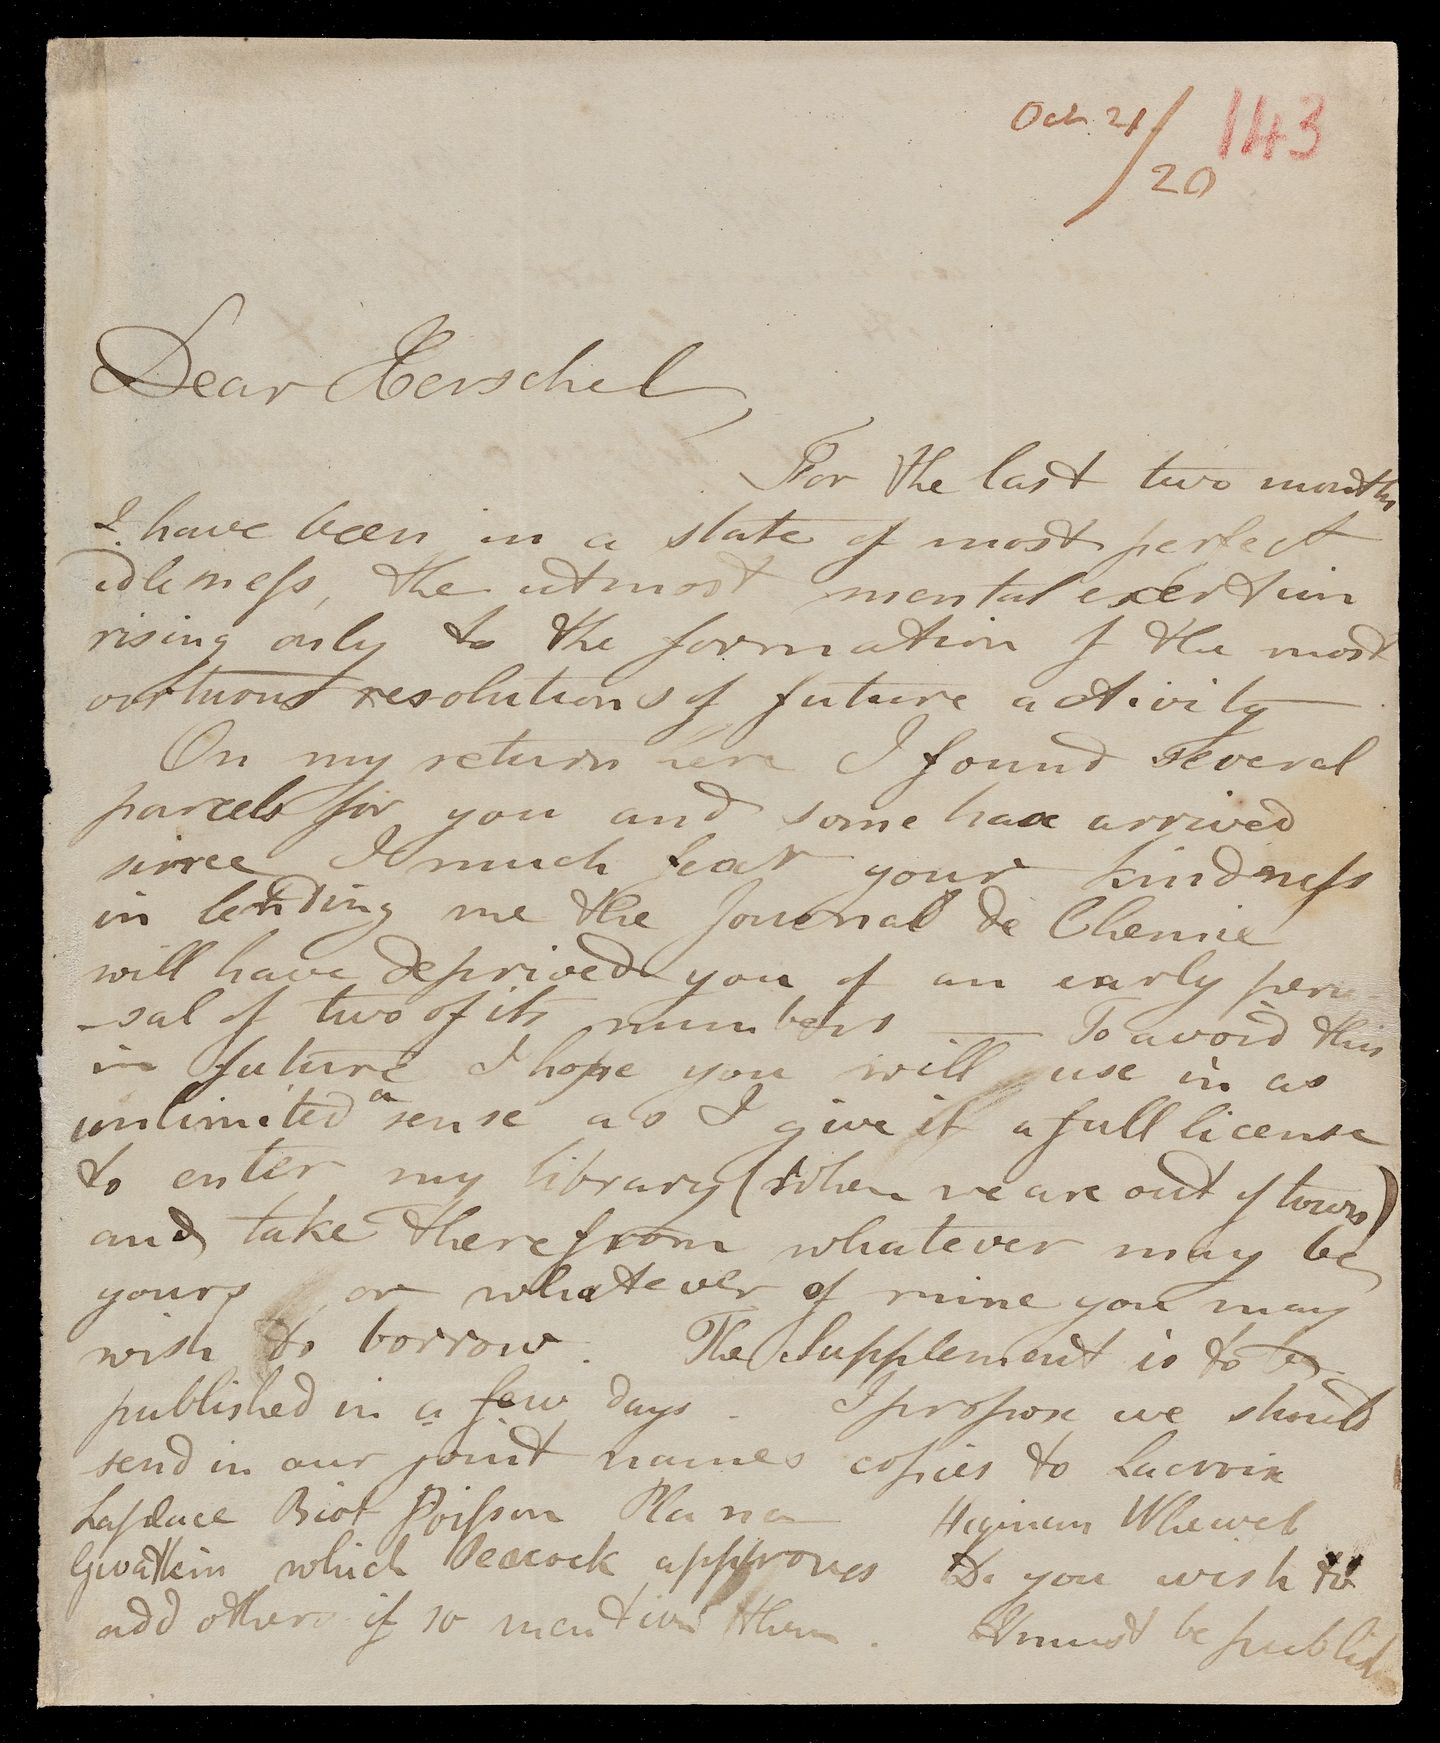 Oct 21
/20
143
Dear Herschel,
For the last two months
I have been in a state of most perfect
idleness, the utmost mental exertion
rising only to the formation of the most
virtuous resolutions of future activity
On my return here I found several
parcels for you and some have arrived
since I much fear your kindness
in lending me the Journal de Chemie
will have deprived you of an early peru
-sal of two of its numbers — To avoid this
in future I hope you will use in as
unlimited a sense as I give it a full license
to enter my library (when we are out of town)
and take therefrom whatever may be
yours or whatever of mine you may
wish to borrow. The Supplement is to be
published in a few days. I propose we should
send in our joint names copies to Lacroix
Laplace Biot Poisson Plana Higman Whewel
Gwatkin which Peacock approves Do you wish to
add others if so mention them. It must be publish